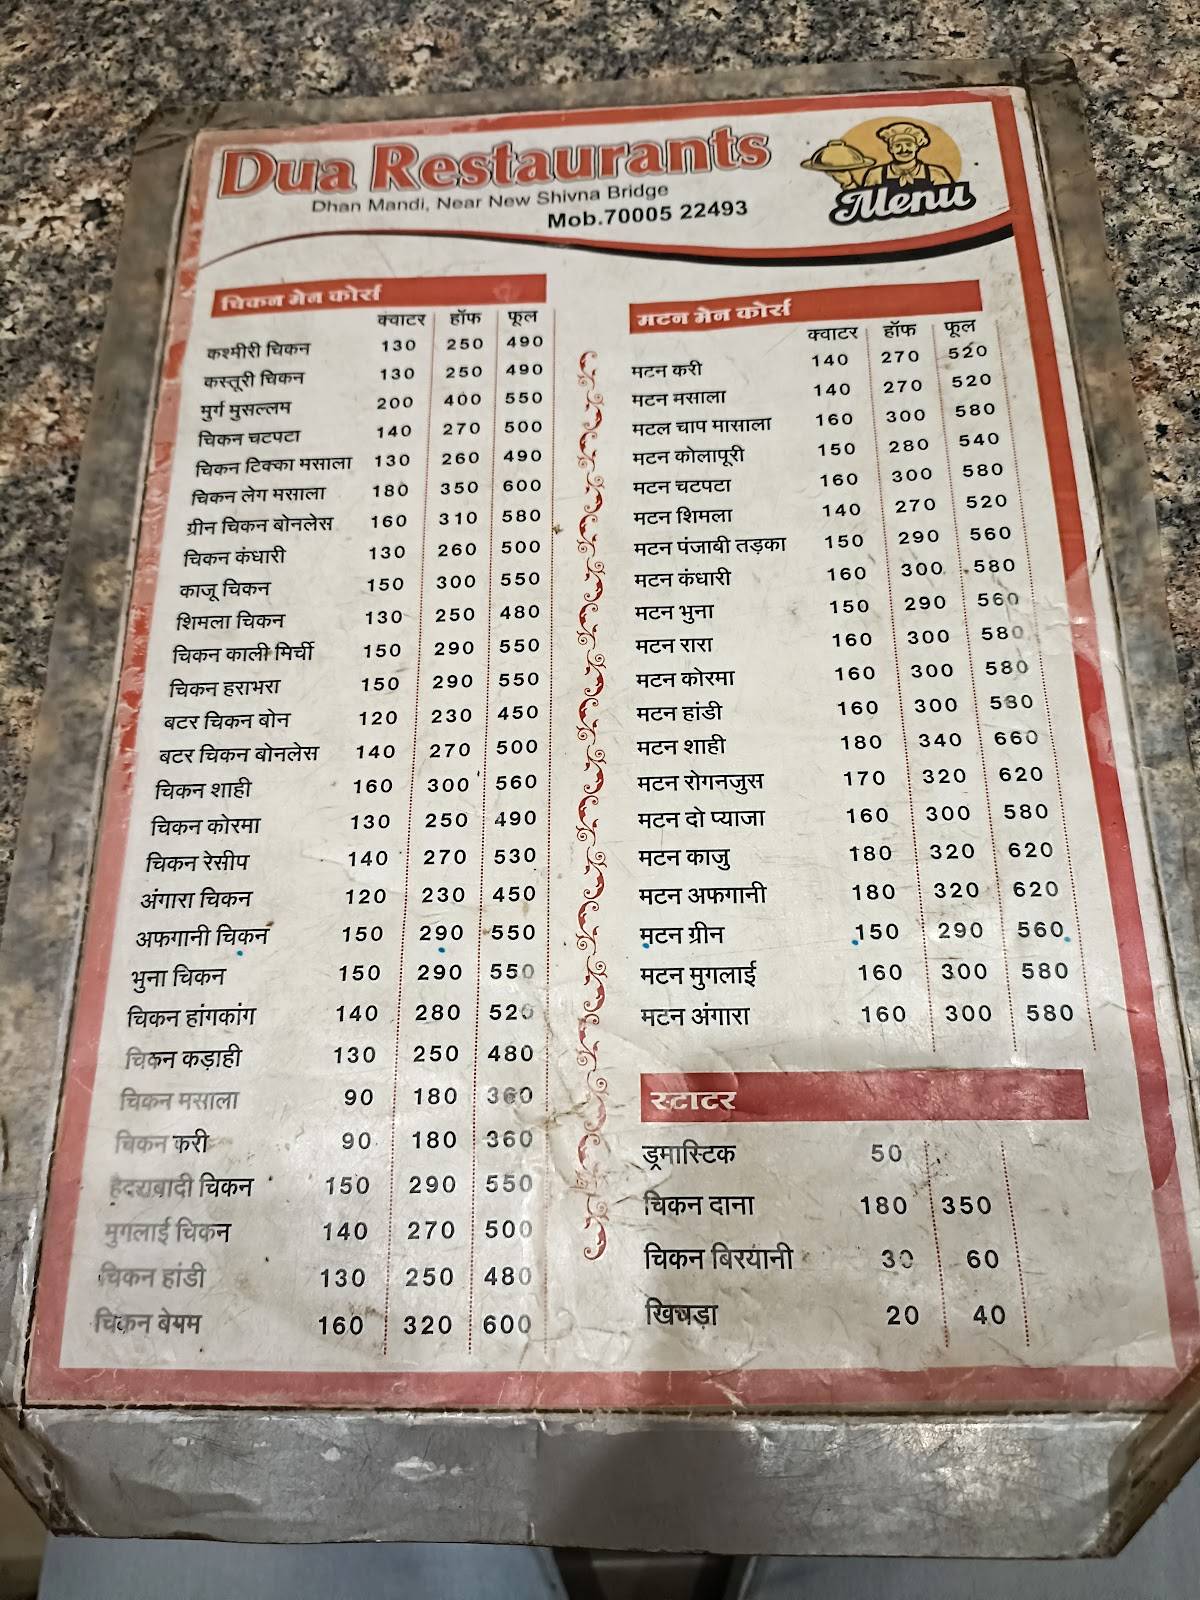 Dua Restaurants
Dhan Mandi, Near New Shivna Bridge
Mob.70005 22493
Menu
चिकन मेन कोर्स
क्वाटर हॉफ फूल
कश्मीरी चिकन 130 250 490
कस्तूरी चिकन 130 250 490
मुर्ग मुसल्लम 200 400 550
चिकन चटपटा 140 270 500
चिकन टिक्का मसाला 130 260 490
चिकन लेग मसाला 180 350 600
ग्रीन चिकन बोनलेस 160 310 580
चिकन कंधारी 130 260 500
काजू चिकन 150 300 550
शिमला चिकन 130 250 480
चिकन काली मिर्ची 150 290 550
चिकन हराभरा 150 290 550
बटर चिकन बोन 120 230 450
बटर चिकन बोनलेस 140 270 500
चिकन शाही 160 300 560
चिकन कोरमा 130 250 490
चिकन रेसीप 140 270 530
अंगारा चिकन 120 230 450
अफगानी चिकन 150 290 550
भुना चिकन 150 290 550
चिकन हांगकांग 140 280 520
चिकन कड़ाही 130 250 480
चिकन मसाला 90 180 360
चिकन करी 90 180 360
हैदराबादी चिकन 150 290 550
मुगलाई चिकन 140 270 500
चिकन हांडी 130 250 480
चिकन बेयम 160 320 600
मटन मेन कोर्स
क्वाटर हॉफ फूल
मटन करी 140 270 520
मटन मसाला 140 270 520
मटल चाप मासाला 160 300 580
मटन कोलापूरी 150 280 540
मटन चटपटा 160 300 580
मटन शिमला 140 270 520
मटन पंजाबी तड़का 150 290 560
मटन कंधारी 160 300 580
मटन भुना 150 290 560
मटन रारा 160 300 580
मटन कोरमा 160 300 580
मटन हांडी 160 300 580
मटन शाही 180 340 660
मटन रोगनजुस 170 320 620
मटन दो प्याजा 160 300 580
मटन काजु 180 320 620
मटन अफगानी 180 320 620
मटन ग्रीन 150 290 560
मटन मुगलाई 160 300 580
मटन अंगारा 160 300 580
स्टाटर
ड्रमास्टिक 50
चिकन दाना 180 350
चिकन बिरयानी 30 60
खिचड़ा 20 40